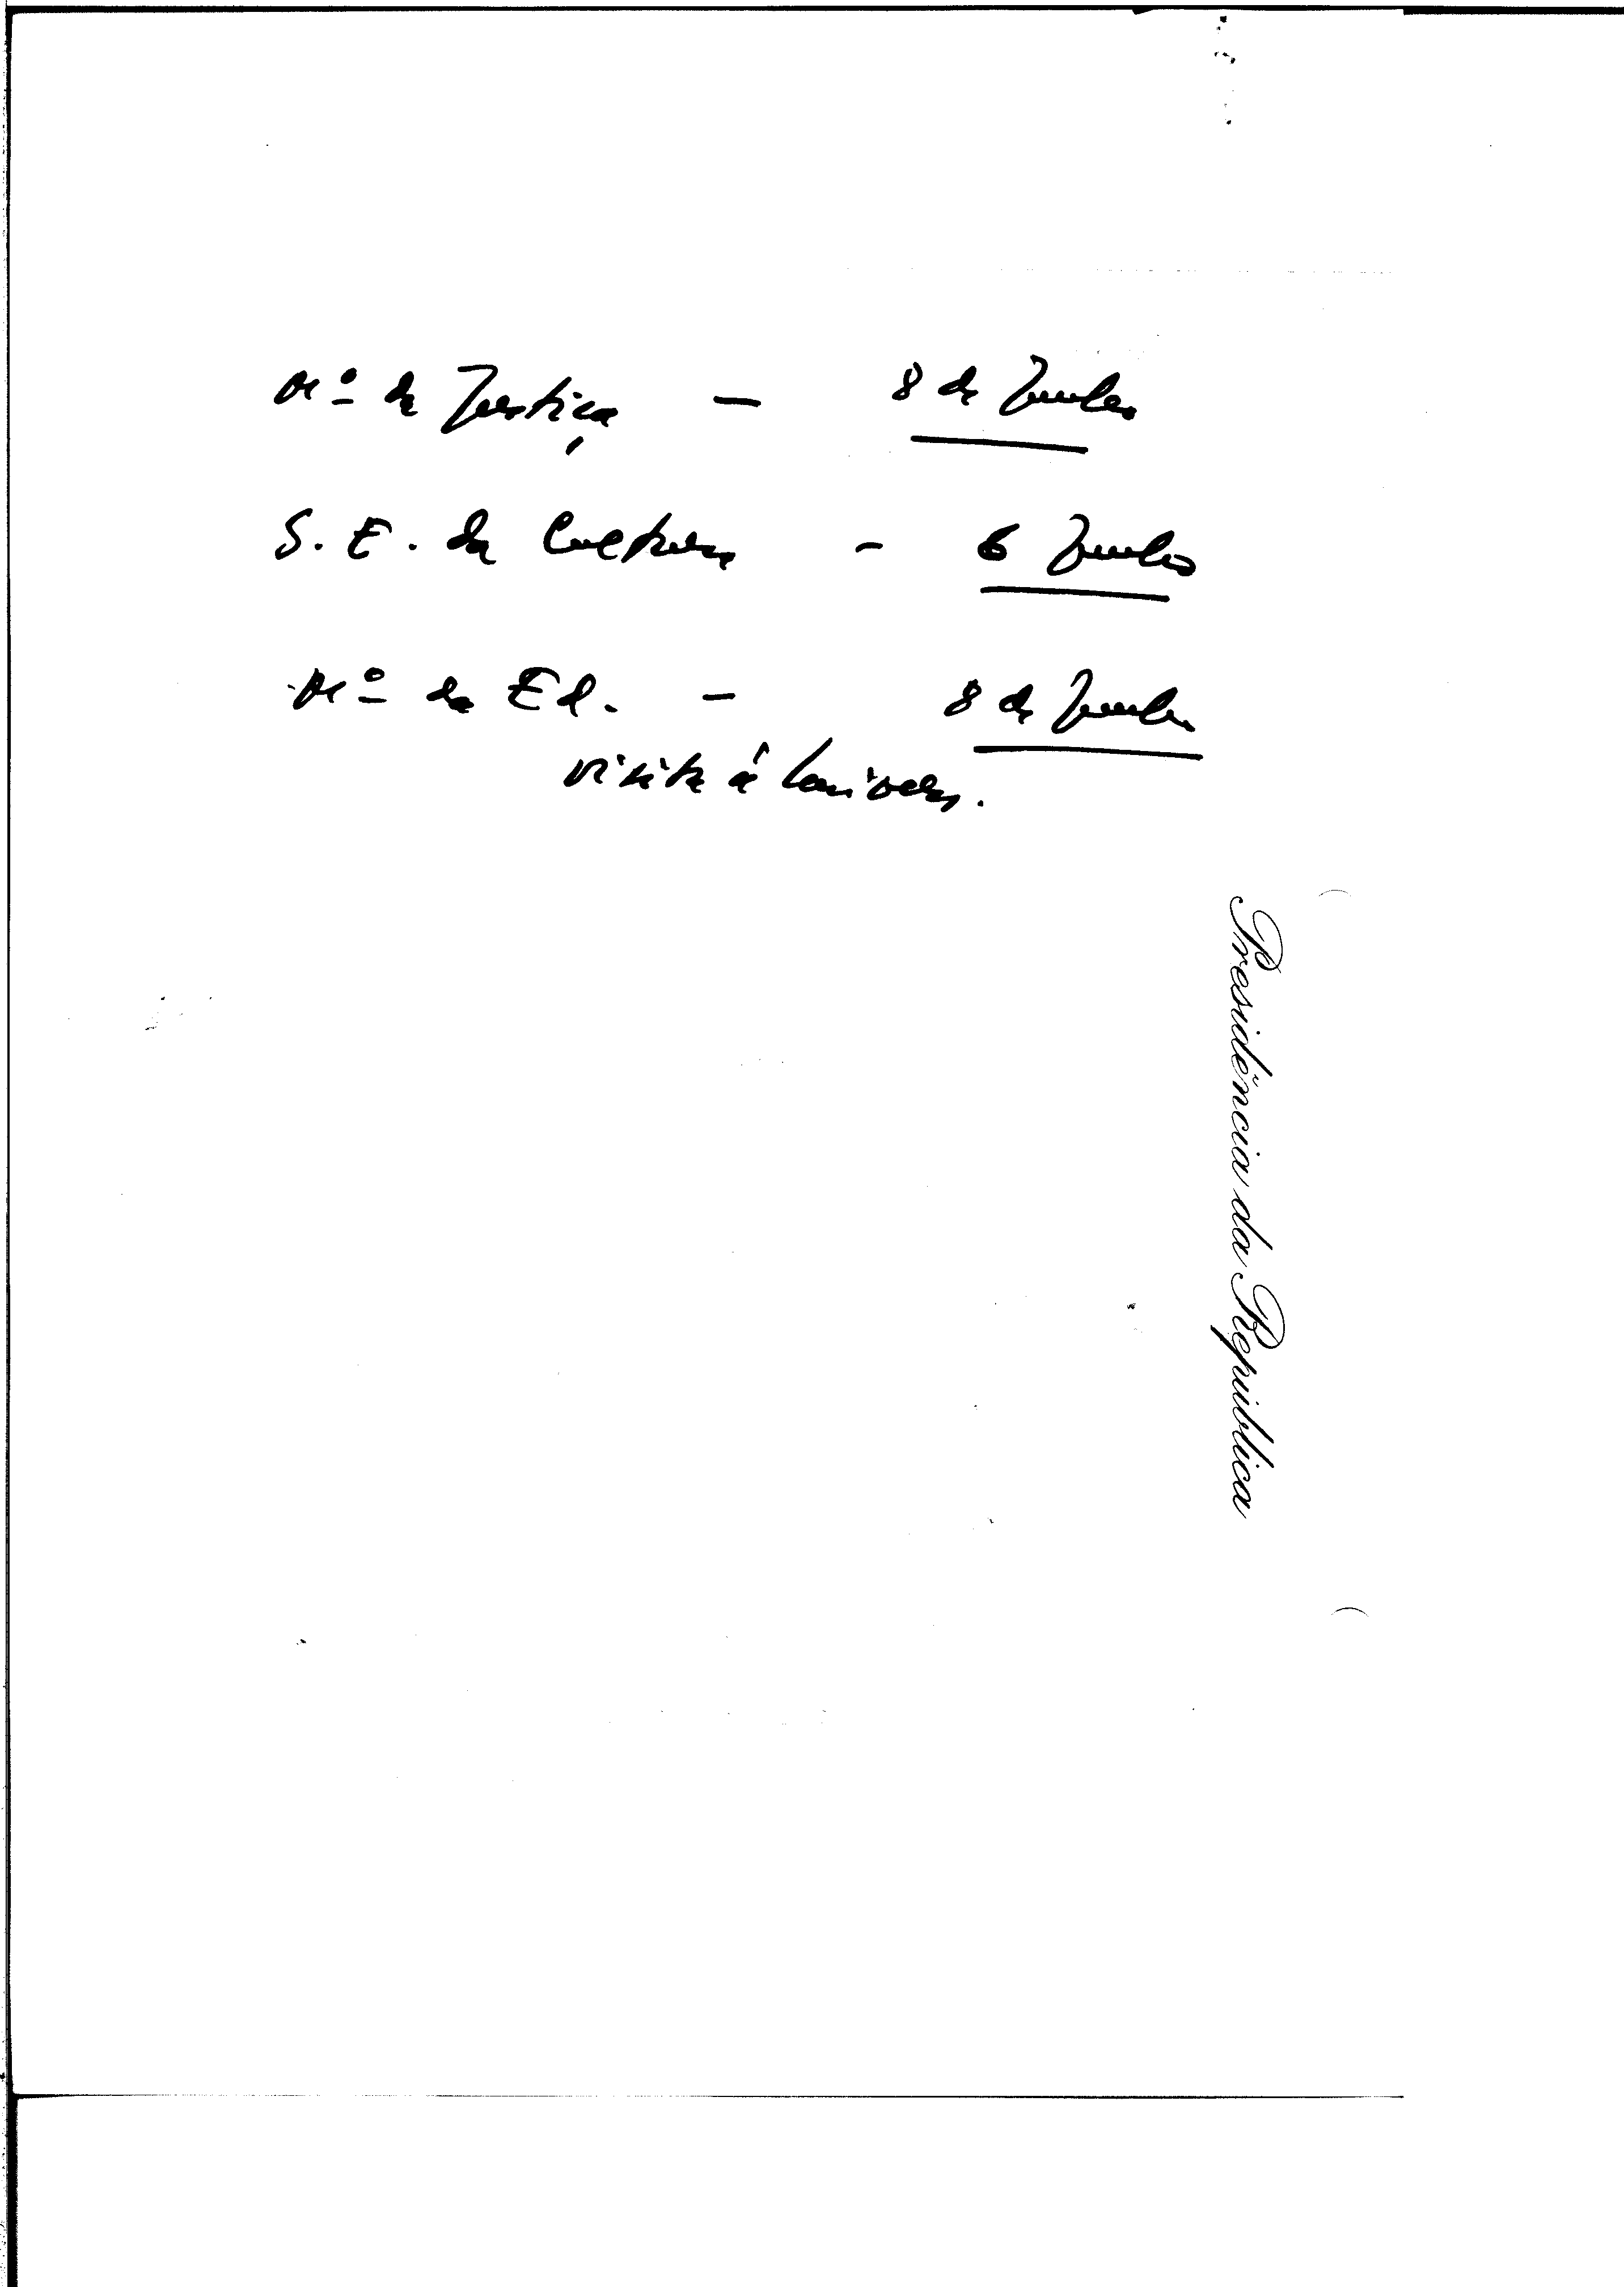 Mº da Justiça — 8 de Junho
S. E. da Cultura - 6 Junho
Mº da Ed. — 8 de Junho
visita à Univers.
Presidência da República